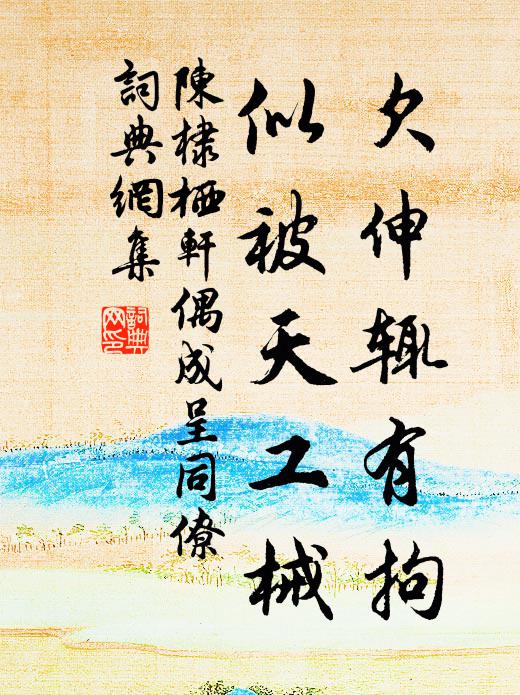 欠伸輒有拘
似被天工械
陳棣栖軒偶成呈同僚
詞典網集
詞典
网印